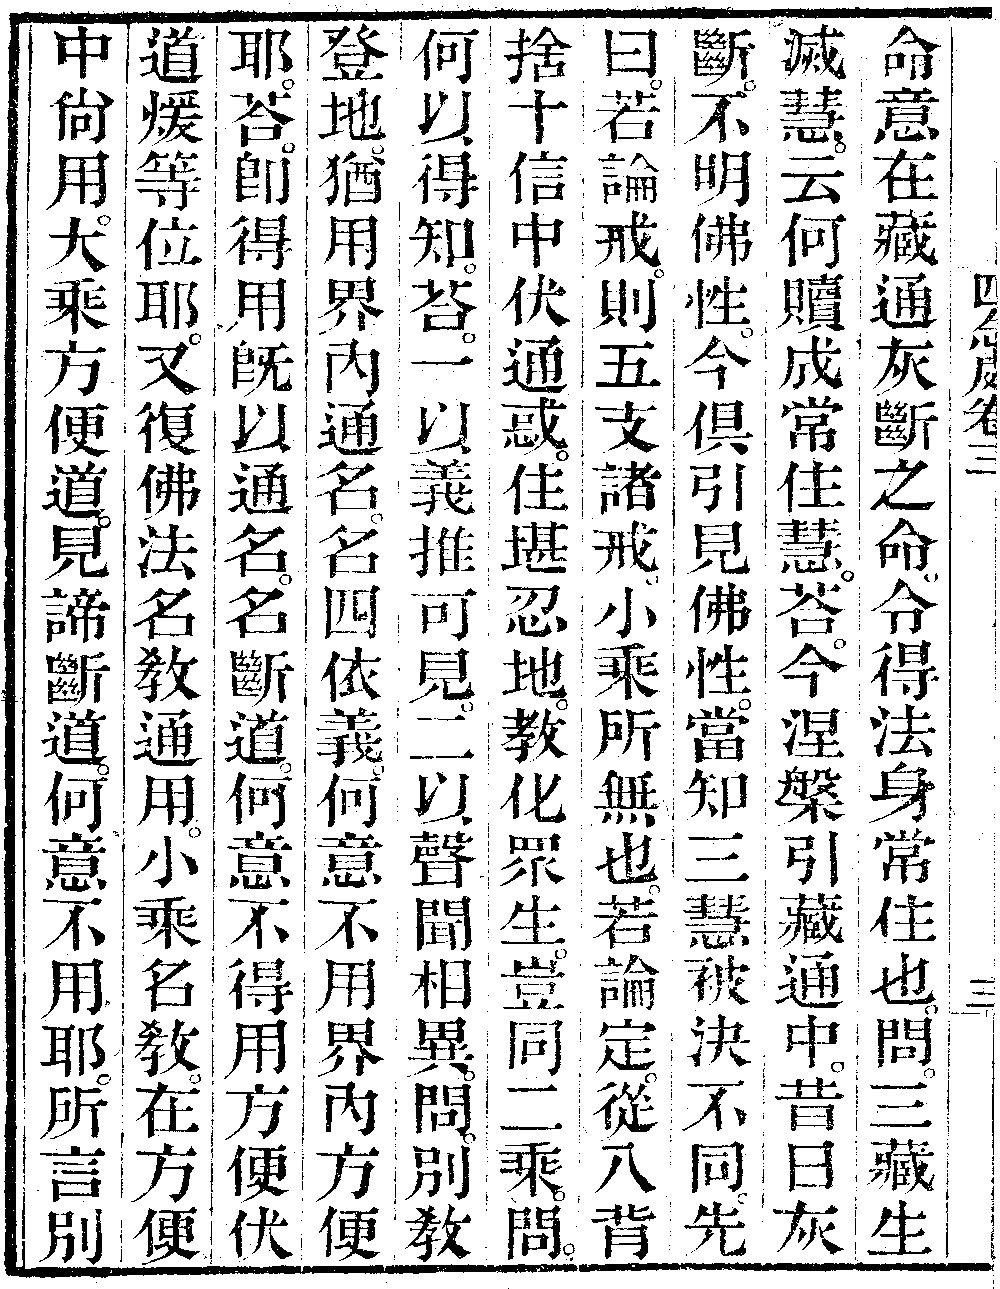 四念處卷三
三
命意在藏通灰斷之命。令得法身常住也。問。三藏生
滅慧。云何贖成常住慧。荅。今涅槃引藏通中。昔日灰
斷。不明佛性。今俱引見佛性。當知三慧被決不同。先
曰。若論戒。則五支諸戒。小乘所無也。若論定。從八背
捨十信中伏通惑。住堪忍地。教化眾生。豈同二乘。問。
何以得知。荅。一以義推可見。二以聲聞相異。問。別教
登地。猶用界內通名。名四依義。何意不用界內方便
耶。荅。卽得用旣以通名。名斷道。何意不得用方便伏
道煖等位耶。又復佛法名教通用。小乘名教。在方便
中尙用。大乘方便道。見諦斷道。何意不用耶。所言別